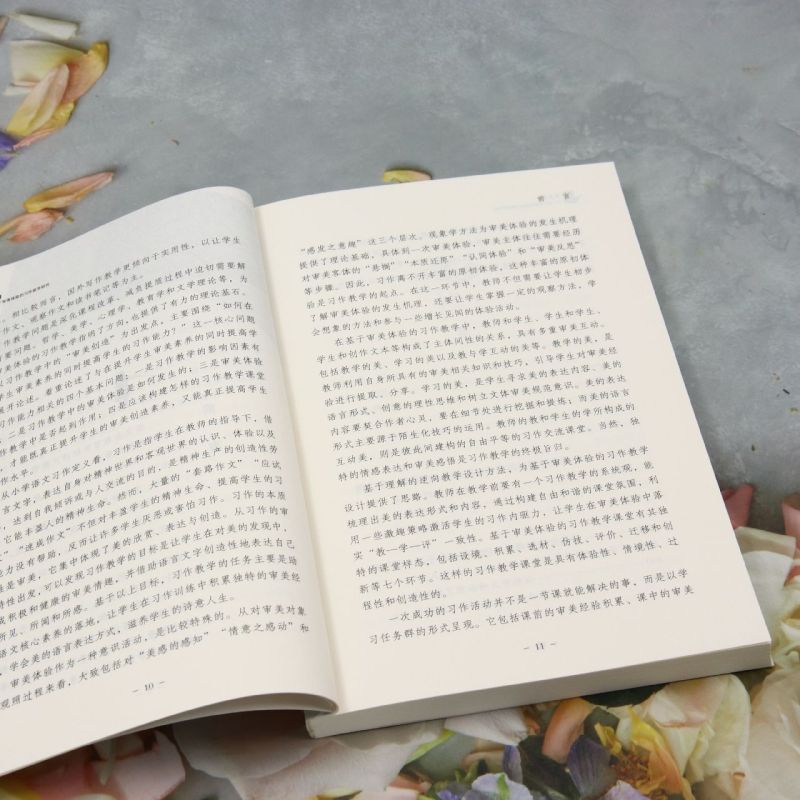 相比较而言，国外写作教学更倾向于实用性，以让学生
作文、观察作文和读书笔记等为主。
作教学问题是深化课程改革、减负提质过程中迫切需要解
要问题。哲学、美学、心理学、教育学和文学理论等，为
美体验的习作教学指明了方向，也提供了有力的理论基石。
以习作教学中的“审美创造”为出发点，主要围绕“如何在
学生审美素养的同时提高学生的习作能力？”这一核心问题
展开论述。着重论述了与在提升学生审美素养的同时提高学
习作能力相关的四个基本问题：一是习作教学的影响因素有
；二是习作教学中的审美体验是如何发生的；三是审美体验
作教学中是否起到作用；四是应该构建怎样的习作教学课堂
，才能既真正提升学生的审美创造素养，又能真正提高学生
作水平。
从小学语文习作定义看，习作是指学生在教师的指导下，借
言文字，表达自身对精神世界和客观世界的认识、体验以及
，达到自我倾诉或与人交流的目的，是精神生产的创造性劳
它能丰盈人的精神生命。然而，大量的“套路作文”“应试
”“速成作文”不但对丰盈学生的精神生命、提高学生的习
能力没有帮助，反而让许多学生厌恶或害怕习作。习作的本质
性是审美，它集中体现了美的欣赏、表达与创造。从习作的审
特性出发，可以发现习作教学的目标是让学生在对美的发现中，
成积极和健康的审美情趣，并借助语言文字创造性地表达自己
所见、所闻和所感。基于以上目标，习作教学的任务主要是助
语文核心素养的落地，让学生在习作训练中积累独特的审美经
，学会美的语言表达方式，滋养学生的诗意人生。
审美体验作为一种意识活动，是比较特殊的。从对审美对象
观照过程来看，大致包括对“美感的感知”“情意之感动”和
- 10 -
前 言
“感发之意趣”这三个层次。现象学方法为审美体验的发生机理
提供了理论基础，具体到一次审美体验，审美主体往往需要经历
对审美客体的“悬搁”“本质还原”“认同体验”和“审美反思”
等步骤。因此，习作离不开丰富的原初体验，这种丰富的原初体
验是习作教学的起点。在这一环节中，教师不但需要让学生初步
了解审美体验的发生机理，还要让学生掌握一定的观察方法，学
会想象的方法和参与一些增长见闻的体验活动。
在基于审美体验的习作教学中，教师和学生、学生和学生、
学生和创作文本等构成了主体间性的关系，具有多重审美互动。
包括教学的美、学习的美以及教与学互动的美等。教学的美，是
教师利用自身所具有的审美相关知识和技巧，引导学生对审美经
验进行提取、分享。学习的美，是学生寻求美的表达内容、美的
语言形式、创意的理性思维和树立文体审美规范意识。美的表达
内容要契合作者心灵，要在细节处进行挖掘和提炼；而美的语言
形式主要源于陌生化技巧的运用。教师的教和学生的学所构成的
互动美，则是彼此间建构的自由平等的习作交流课堂。当然，独
特的情感表达和审美感悟是习作教学的终极旨归。
基于理解的逆向教学设计方法，为基于审美体验的习作教学
设计提供了思路。教师在教学前要有一个习作教学的系统观，能
梳理出美的表达形式和内容，通过构建自由和谐的课堂氛围，利
用一些激趣策略激活学生的习作内驱力，让学生在审美体验中落
实“教—学—评”一致性。基于审美体验的习作教学课堂有其独
特的课堂样态，包括设境、积累、选材、仿技、评价、迁移和创
新等七个环节。这样的习作教学课堂是具有体验性、情境性、过
程性和创造性的。
一次成功的习作活动并不是一节课就能解决的事，而是以学
习任务群的形式呈现。它包括课前的审美经验积累、课中的审美
- 11 -